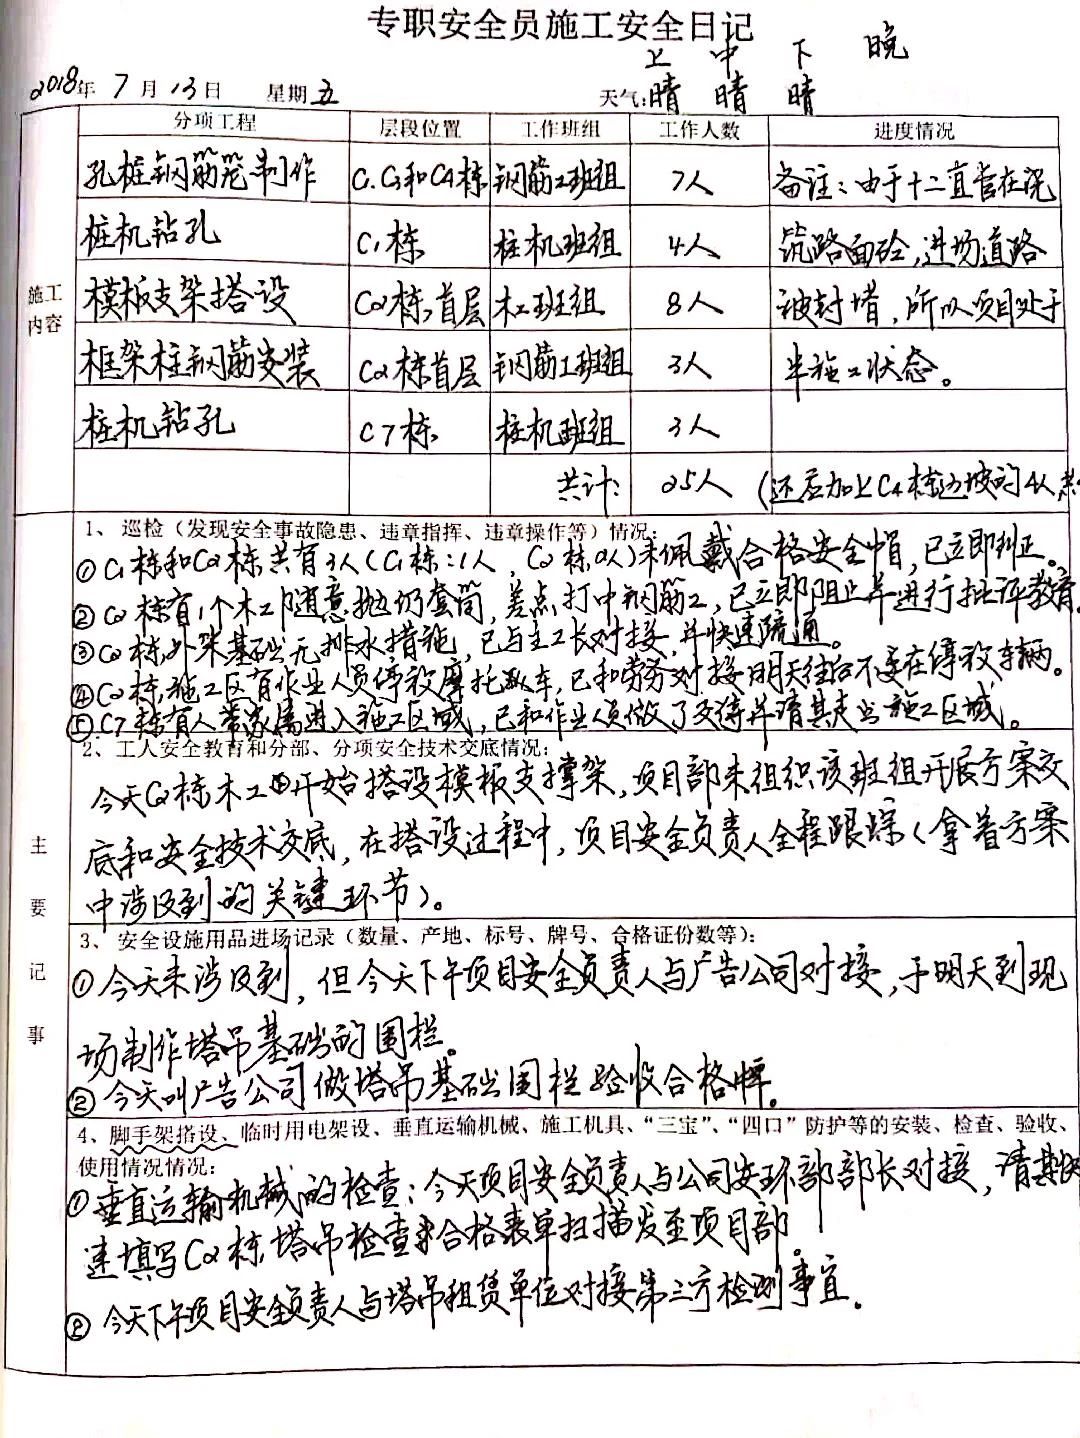 专职安全员施工安全日记
上 中 下 晚
2018年 7月 13日 星期五 天气:晴 晴 晴
分项工程 层段位置 工作班组 工作人数 进度情况
孔桩钢筋笼制作 C1.C3和C4栋 钢筋工班组 7人 备注:由于十二直管在浇
桩机钻孔 C1栋 桩机班组 4人 筑路面砼,进场道路
施工 模板支架搭设 C2栋,首层 木工班组 8人 被封堵,所以项目处于
内容
框架柱钢筋安装 C2栋首层 钢筋工班组 3人 半施工状态。
桩机钻孔 C7栋 桩机班组 3人
共计: 25人 (还应加上C4栋边坡的4人
1、巡检(发现安全事故隐患、违章指挥、违章操作等)情况:
①C1栋和C2栋共有3人(C1栋:1人,C2栋2人)未佩戴合格安全帽,已立即纠正。
②C2栋有1个木工随意抛扔套筒,差点打中钢筋工,已立即阻止并进行批评教育
③C2栋,外架基础无排水措施,已与主工长对接,并快速疏通。
④C2栋,施工区有作业人员停放摩托车,已和劳务对接明天往后不要在停放车辆。
⑤C7栋有人带家属进入施工区域,已和作业人员做了交待并请其走出施工区域。
2、工人安全教育和分部、分项安全技术交底情况:
今天C2栋木工开始搭设模板支撑架,项目部未组织该班组开展方案交
底和安全技术交底,在搭设过程中,项目安全负责人全程跟踪(拿着方案
中涉及到的关键环节)。
主要记事
3、安全设施用品进场记录(数量、产地、标号、牌号、合格证份数等):
①今天未涉及到,但今天下午项目安全负责人与广告公司对接,于明天到现
场制作塔吊基础的围栏。
②今天叫广告公司做塔吊基础围栏验收合格牌。
4、脚手架搭设、临时用电架设、垂直运输机械、施工机具、“三宝”、“四口”防护等的安装、检查、验收、
使用情况情况:
①垂直运输机械的检查:今天项目安全负责人与公司安环部部长对接,请其快
速填写C2栋,塔吊检查合格表单扫描发至项目部。
②今天下午项目安全负责人与塔吊租赁单位对接第三方检测事宜。